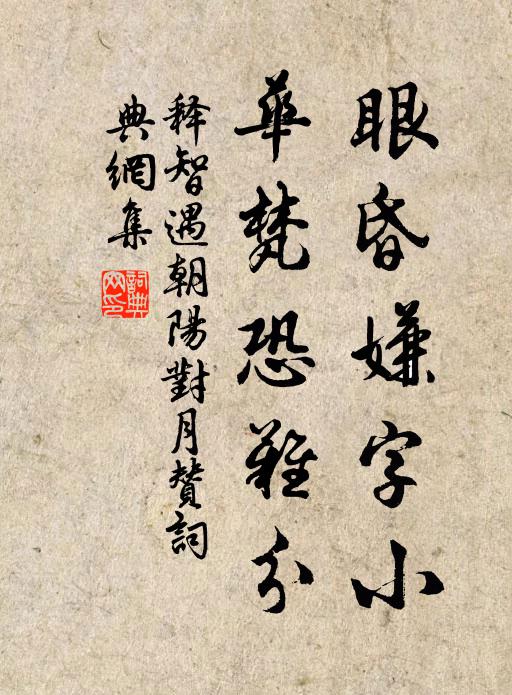 眼昏嫌字小
華梵恐難分
释智遇朝陽對月賛詞
典網集
詞典網印